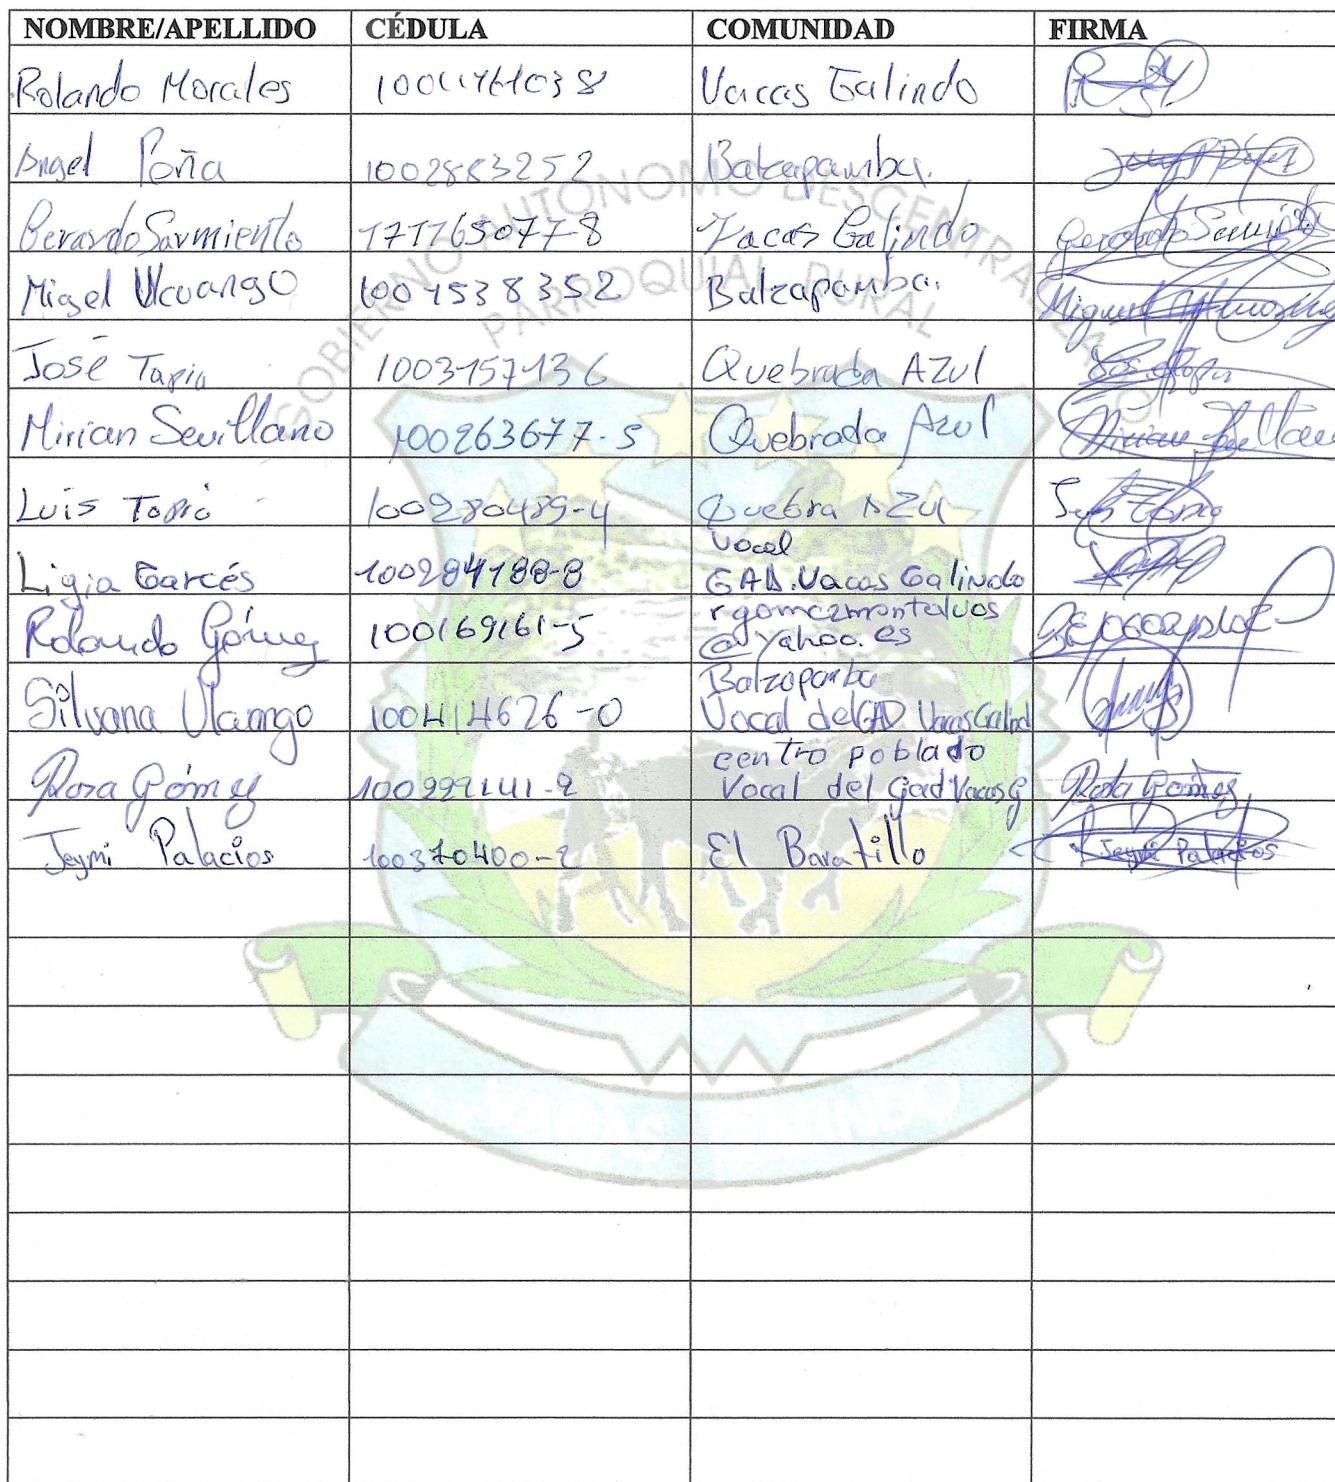 NOMBRE/APELLIDO CÉDULA COMUNIDAD FIRMA
Rolando Morales Vacas Galindo
Angel 1002883252 Balzapamba.
Gerardo Sarmiento 171765077-8 Vacas Galindo Gerardo Sarmiento
Migel 1001538352 Balzapamba. Miguel
José Tapia 1003157136 Quebrada AZul
Mirian Sevillano 100263677-5 Quebrada Azul Mirian Sevillano
Luis 100280489-4 Quebra AZul
Ligia Garcés 100284188-8 Vocal
GAD. Vacas Galindo
Rolando Gómez 100169161-5 rgomezmontalvos
@yahoo.es
Silvana 100414626-0 Balzapamba
Vocal del GAD Vacas Galind
Rosa Gómez centro poblado
Vocal del Gad Vacas G Rosa Gómez
Jeymi Palacios 100370400-2 El Baratillo Jeymi Palacios
GOBIERNO AUTONOMO DESCENTRALIZADO
PARROQUIAL RURAL
VACAS GALINDO